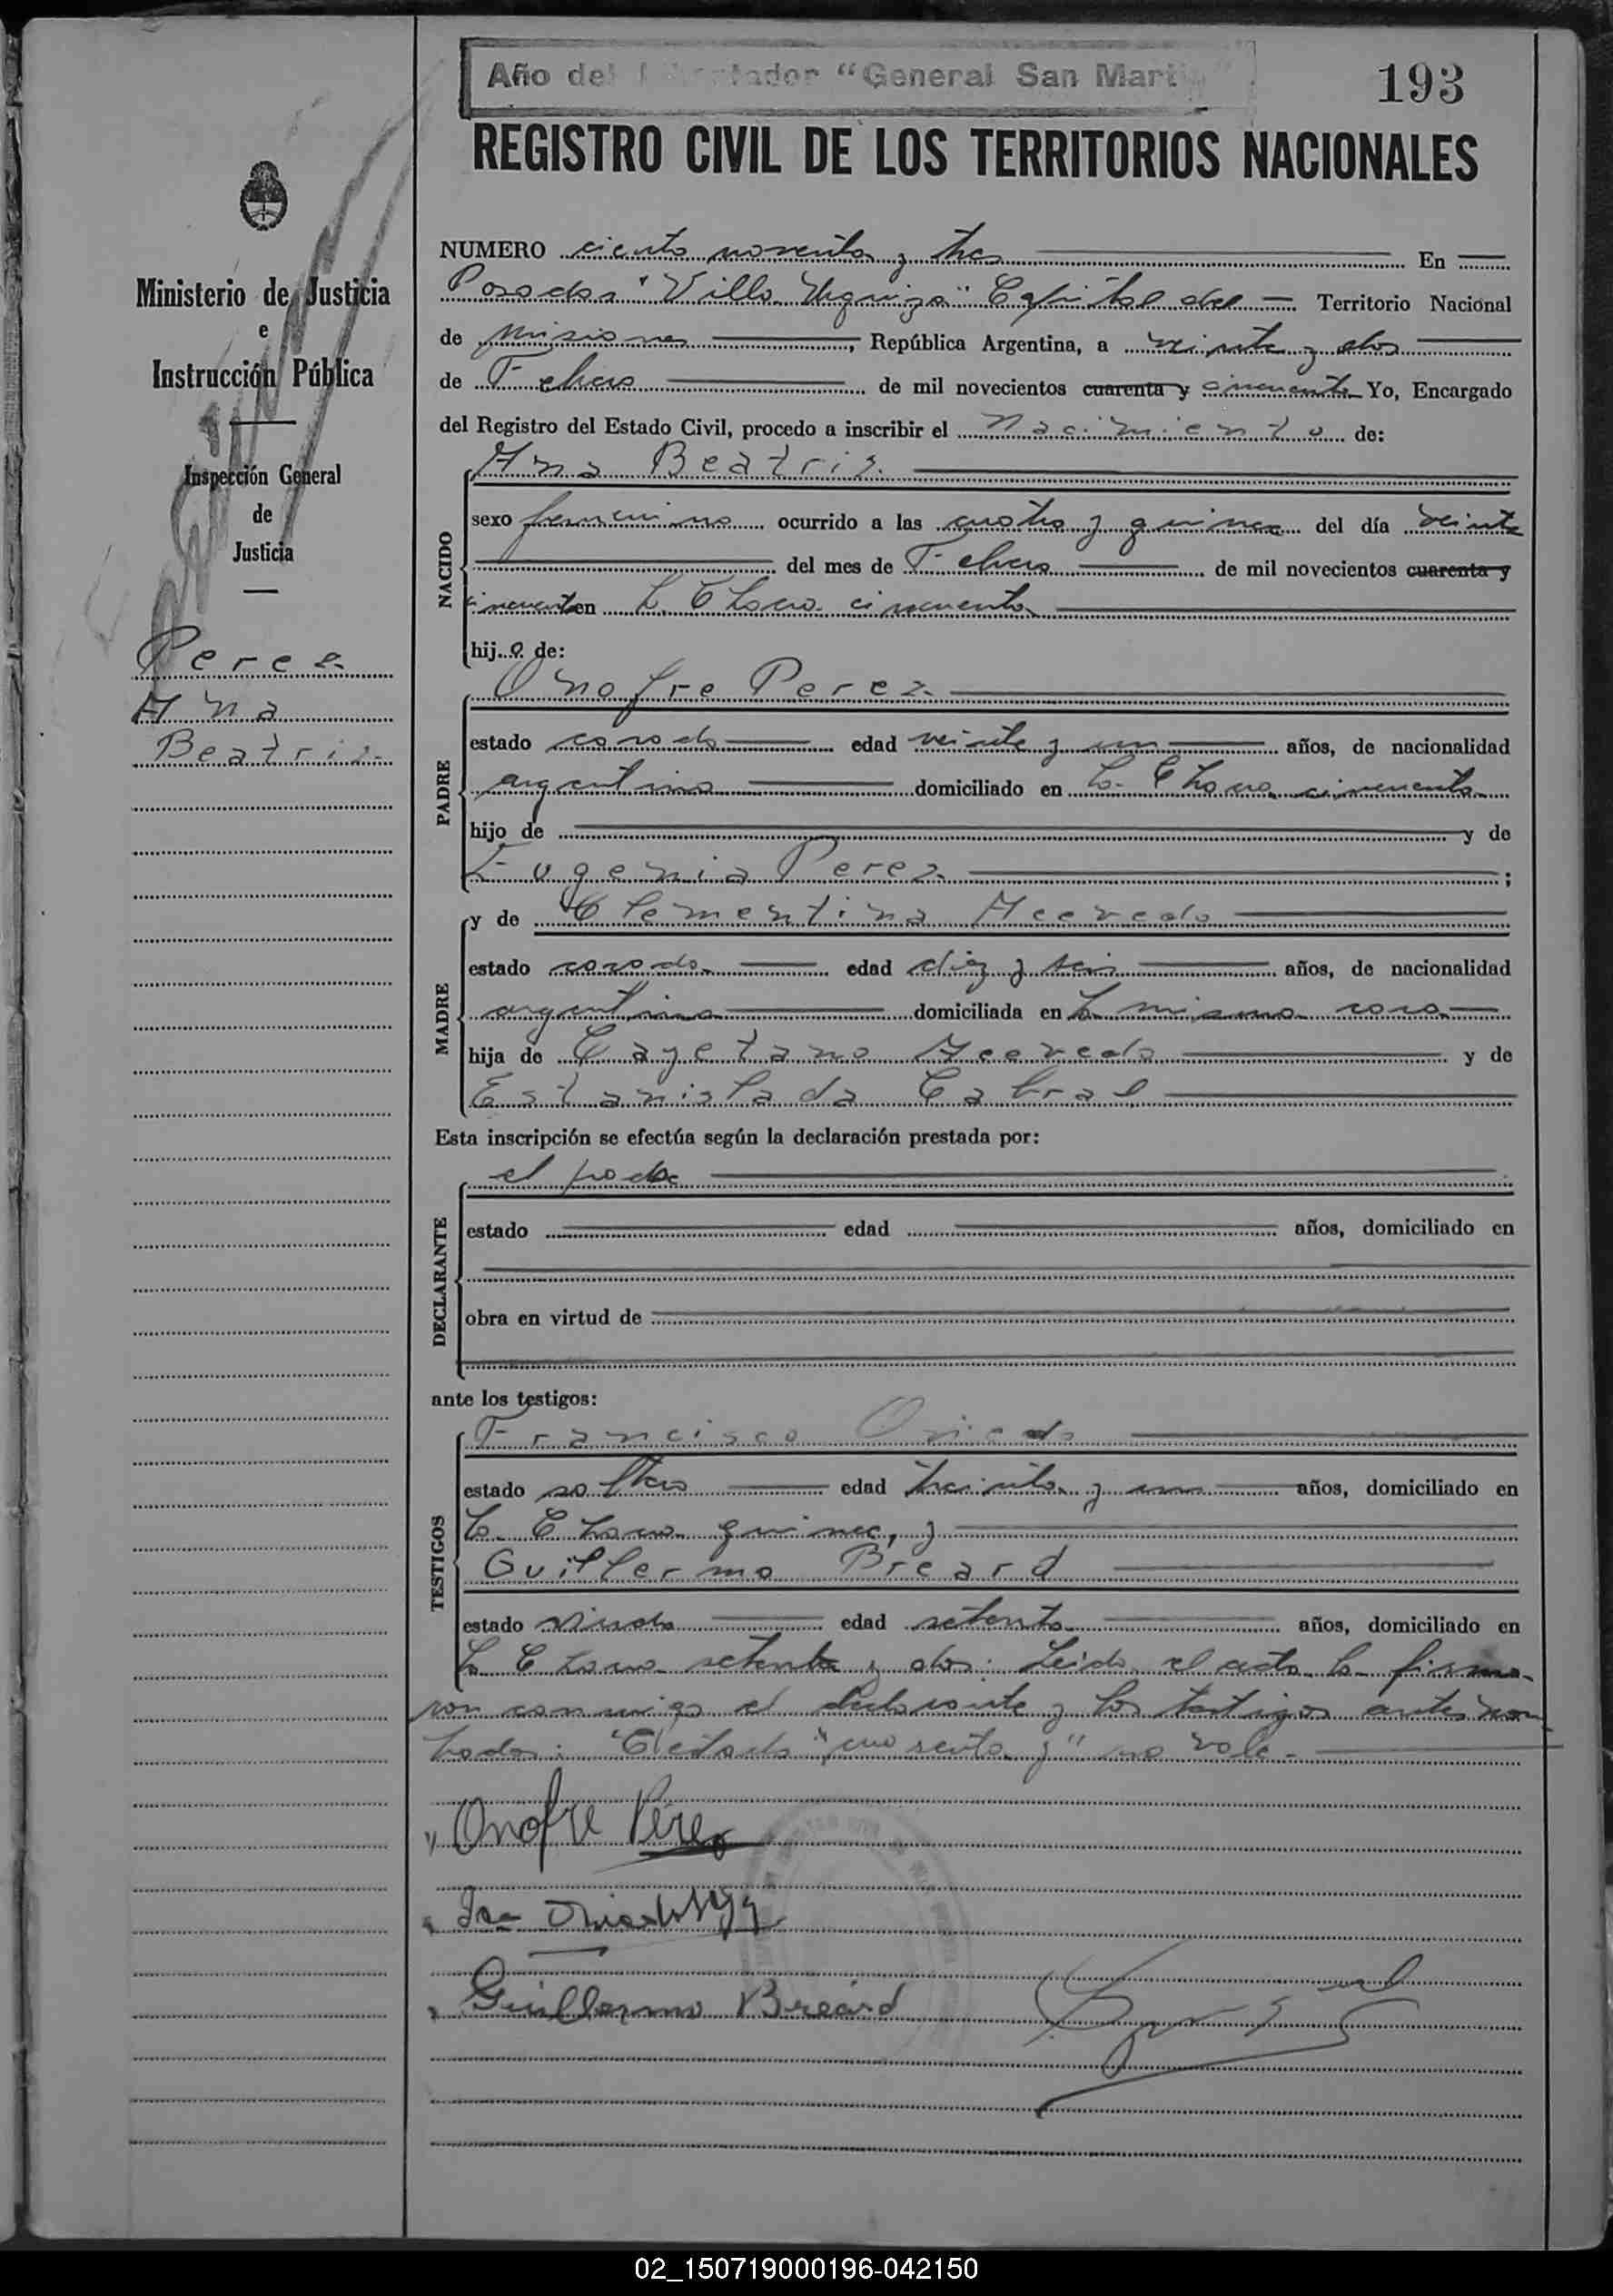 Año del Libertador "General San Martín"
193
REGISTRO CIVIL DE LOS TERRITORIOS NACIONALES
Ministerio de Justicia
e
Instrucción Pública
Inspección General
de
Justicia
Perez
Ana
Beatriz
NUMERO ciento noventa y tres En
Posadas "Villa Urquiza" Capital del Territorio Nacional
de Misiones, República Argentina, a veinte y dos
de Febrero de mil novecientos cuarenta y cincuenta Yo, Encargado
del Registro del Estado Civil, procedo a inscribir el nacimiento de:
NACIDO
Ana Beatriz
sexo femenino ocurrido a las cuatro y quince del día veinte
del mes de Febrero de mil novecientos cuarenta y
cincuenta en La Chaco cincuenta
hij a de:
PADRE
Onofre Perez
estado casado edad veinte y un años, de nacionalidad
argentina domiciliado en La Chaco cincuenta
hijo de y de
Eugenia Perez ;
MADRE
y de Clementina Acevedo
estado casada edad diez y seis años, de nacionalidad
argentina domiciliada en la misma casa
hija de Cayetano Acevedo y de
Estanislada Cabral
Esta inscripción se efectúa según la declaración prestada por:
DECLARANTE
el padre
estado edad años, domiciliado en
obra en virtud de
ante los testigos:
TESTIGOS
Francisco Oviedo
estado soltero edad treinta y un años, domiciliado en
La Chaco quince, y
Guillermo Breard
estado viudo edad setenta años, domiciliado en
La Chaco setenta y dos. Leida el acta la firma-
ron conmigo el declarante y los testigos antes nom
brados. Testado "cuarenta y" no vale.
Onofre Pérez
Guillermo Breard
02_150719000196-042150